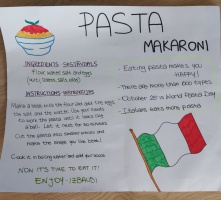 PASTA
MAKARONI
INGREDIENTS
flour, water, salt and eggs
INSTRUCTIONS
Make a well with the flour and add the eggs,
the salt and the water. Use your hands
to work the pasta until it looks like
a ball. Let it rest for 30 minutes
Cut the pasta into smaller pieces and
make the shape you like best!
Cook it in boiling water and add your sauce
NOW IT'S TIME TO EAT IT!
ENJOY
- Eating pasta makes you
HAPPY!
- There are more than 600 types
- October 25 is World Pasta Day
- Italians eats more pasta